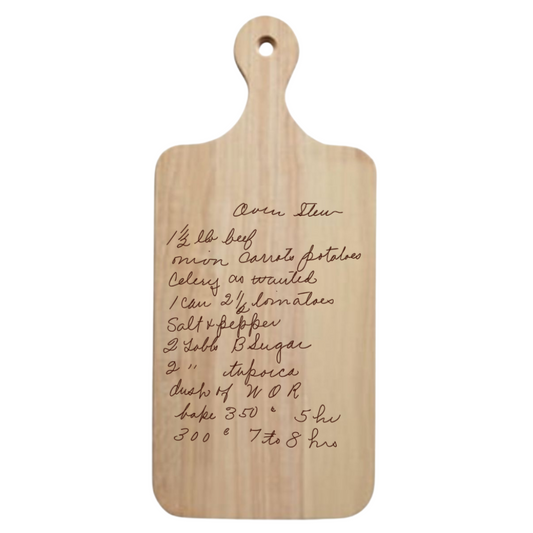 Oven Stew
1 1/2 lb beef
onion Carrots potatoes
Celery as wanted
1 can 2 1/2 tomatoes
Salt & pepper
2 Table B Sugar
2 " tapioca
dash of W O R
bake 350° 5 hr
300° 7 to 8 hrs